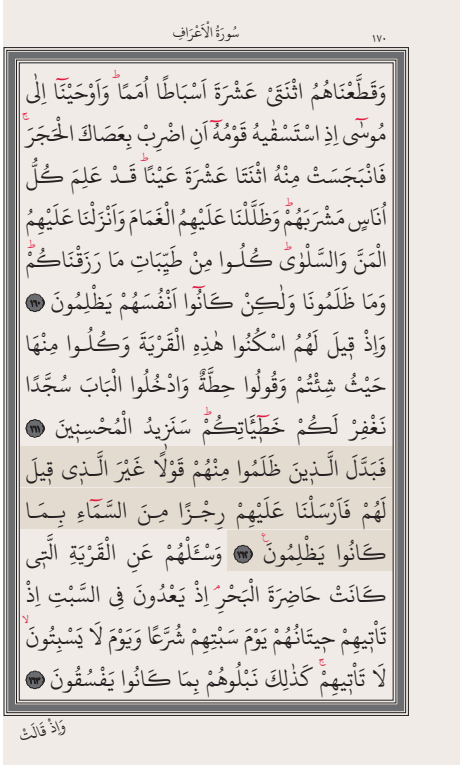 سُورَةُ الْاَعْرَافِ ١٧٠
وَقَطَّعْنَاهُمُ اثْنَتَىْ عَشْرَةَ اَسْبَاطًا اُمَمًاۜ وَاَوْحَيْنَٓا اِلٰى
مُوسٰٓى اِذِ اسْتَسْقٰيهُ قَوْمُهُٓ اَنِ اضْرِبْ بِعَصَاكَ الْحَجَرَۚ
فَانْبَجَسَتْ مِنْهُ اثْنَتَا عَشْرَةَ عَيْنًاۜ قَدْ عَلِمَ كُلُّ
اُنَاسٍ مَشْرَبَهُمْۜ وَظَلَّلْنَا عَلَيْهِمُ الْغَمَامَ وَاَنْزَلْنَا عَلَيْهِمُ
الْمَنَّ وَالسَّلْوٰىۜ كُلُوا مِنْ طَيِّبَاتِ مَا رَزَقْنَاكُمْۜ
وَمَا ظَلَمُونَا وَلٰكِنْ كَانُٓوا اَنْفُسَهُمْ يَظْلِمُونَ ﴿١٦٠﴾
وَاِذْ ق۪يلَ لَهُمُ اسْكُنُوا هٰذِهِ الْقَرْيَةَ وَكُلُوا مِنْهَا
حَيْثُ شِئْتُمْ وَقُولُوا حِطَّةٌ وَادْخُلُوا الْبَابَ سُجَّدًا
نَغْفِرْ لَكُمْ خَط۪ٓيـَٔاتِكُمْۜ سَنَز۪يدُ الْمُحْسِن۪ينَ ﴿١٦١﴾
فَبَدَّلَ الَّذ۪ينَ ظَلَمُوا مِنْهُمْ قَوْلًا غَيْرَ الَّذ۪ى ق۪يلَ
لَهُمْ فَاَرْسَلْنَا عَلَيْهِمْ رِجْزًا مِنَ السَّمَٓاءِ بِمَا
كَانُوا يَظْلِمُونَ۟ ﴿١٦٢﴾ وَسْـَٔلْهُمْ عَنِ الْقَرْيَةِ الَّت۪ى
كَانَتْ حَاضِرَةَ الْبَحْرِۢ اِذْ يَعْدُونَ فِى السَّبْتِ اِذْ
تَاْت۪يهِمْ ح۪يتَانُهُمْ يَوْمَ سَبْتِهِمْ شُرَّعًا وَيَوْمَ لَا يَسْبِتُونَۙ
لَا تَاْت۪يهِمْۚ كَذٰلِكَ نَبْلُوهُمْ بِمَا كَانُوا يَفْسُقُونَ ﴿١٦٣﴾
وَاِذْ قَالَتْ